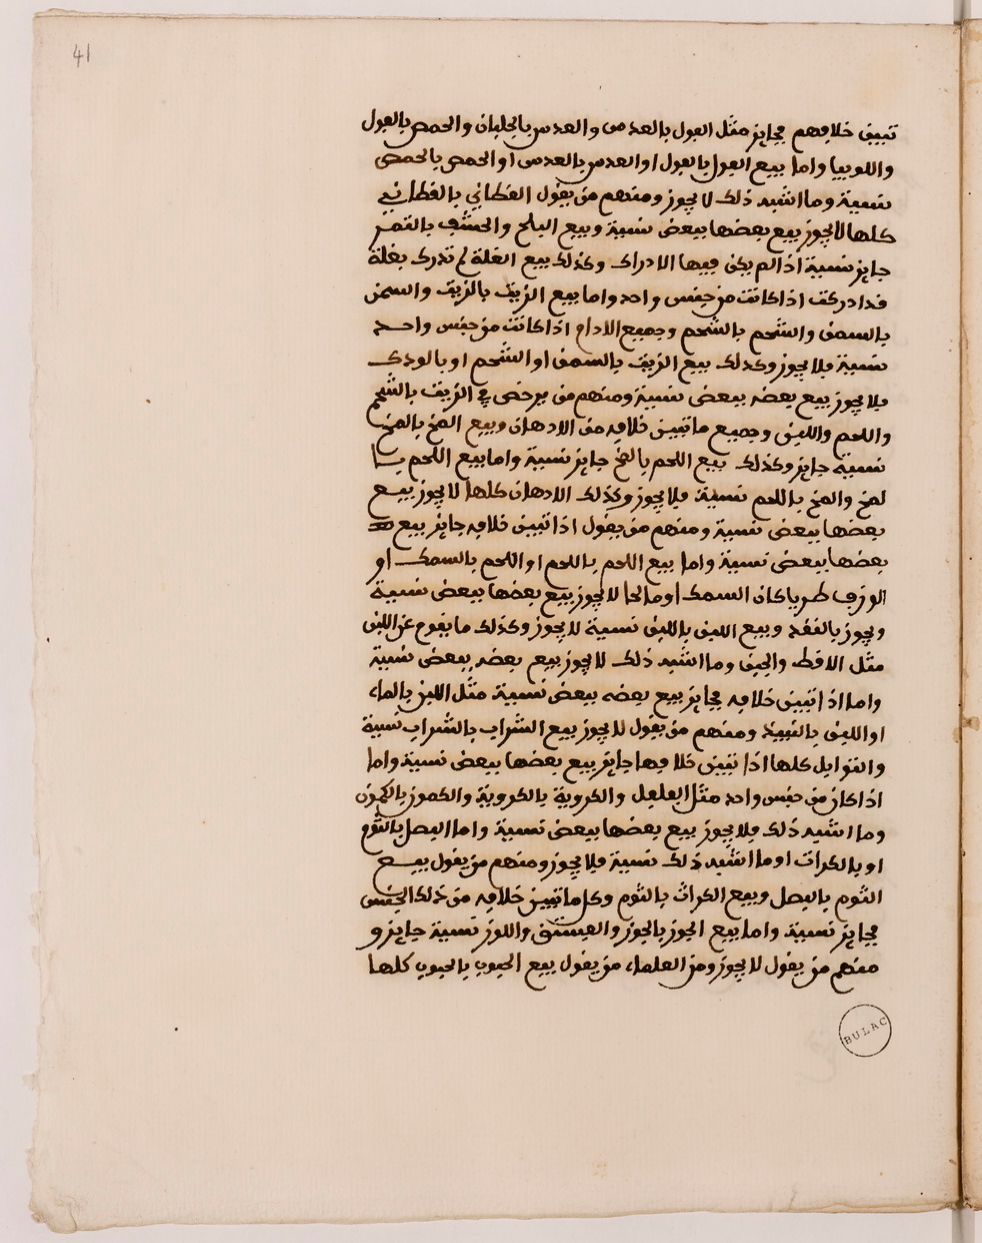 41
تبين خلافهم فجايز مثل الفول بالعدس والعدس بالجلبان والحمص بالفول
واللوبيا واما بيع الفول بالفول اوالعدس بالعدس او الحمص بالحمص
نسيئة وما اشبه ذلك لا يجوز ومنهم من يقول القطاني بالقطاني
كلها لا يجوز بيع بعضها ببعض نسية وبيع البلح والحشف بالتمر
جايز نسية اذا لم يكن فيها الادراك وكذلك بيع الغلة لم تدرك بغلة
قد ادركت اذا كانت من جنس واحد واما بيع الزيت بالزيت والسمن
بالسمن والشحم بالشحم وجميع الادام اذا كانت من جنس واحد
نسية فلا يجوز وكذلك بيع الزيت بالسمن او الشحم او بالودك
فلا يجوز بيع بعضه ببعض نسية ومنهم من يرخص في الزيت بالشحم
واللحم واللبن وجميع ما تبين خلافه من الادهان وبيع المخ بالمخ
نسية جايز وكذلك بيع اللحم بالمخ جايز نسية واما بيع اللحم با
لمخ والمخ باللحم نسية فلا يجوز وكذلك الادهان كلها لا يجوز بيع
بعضها ببعض نسية ومنهم من يقول اذا تبين خلافه جايز بيع
بعضها ببعض نسية واما بيع اللحم باللحم او اللحم بالسمك او
الوزف طريا كان السمك او مالحا لا يجوز بيع بعضها ببعض نسية
ويجوز بالنقد وبيع اللبن باللبن نسية لا يجوز وكذلك ما يقوم عن اللبن
مثل الاقط والجبن وما اشبه ذلك لا يجوز بيع بعضه ببعض نسية
واما اذا تبين خلافه فجايز بيع بعضه ببعض نسية مثل اللبن بالماء
او اللبن بالنبيذ ومنهم من يقول لا يجوز بيع الشراب بالشراب نسية
والتوابل كلها اذا تبين خلافها جايز بيع بعضها ببعض نسية واما
اذا كان من جنس واحد مثل الفلفل والكروية بالكروية والكمون بالكمون
وما اشبه ذلك فلا يجوز بيع بعضها ببعض نسية واما البصل بالثوم
او بالكراث او ما اشبه ذلك نسية فلا يجوز ومنهم من يقول بيع
الثوم بالبصل وبيع الكراث بالثوم وكل ما تبين خلافه من ذلك الجنس
فجايز نسية واما بيع الجوز بالجوز والفيستق واللوز نسية جايز و
منهم من يقول لا يجوز ومن العلماء من يقول بيع الحبوب بالحبوب كلها
BULAC